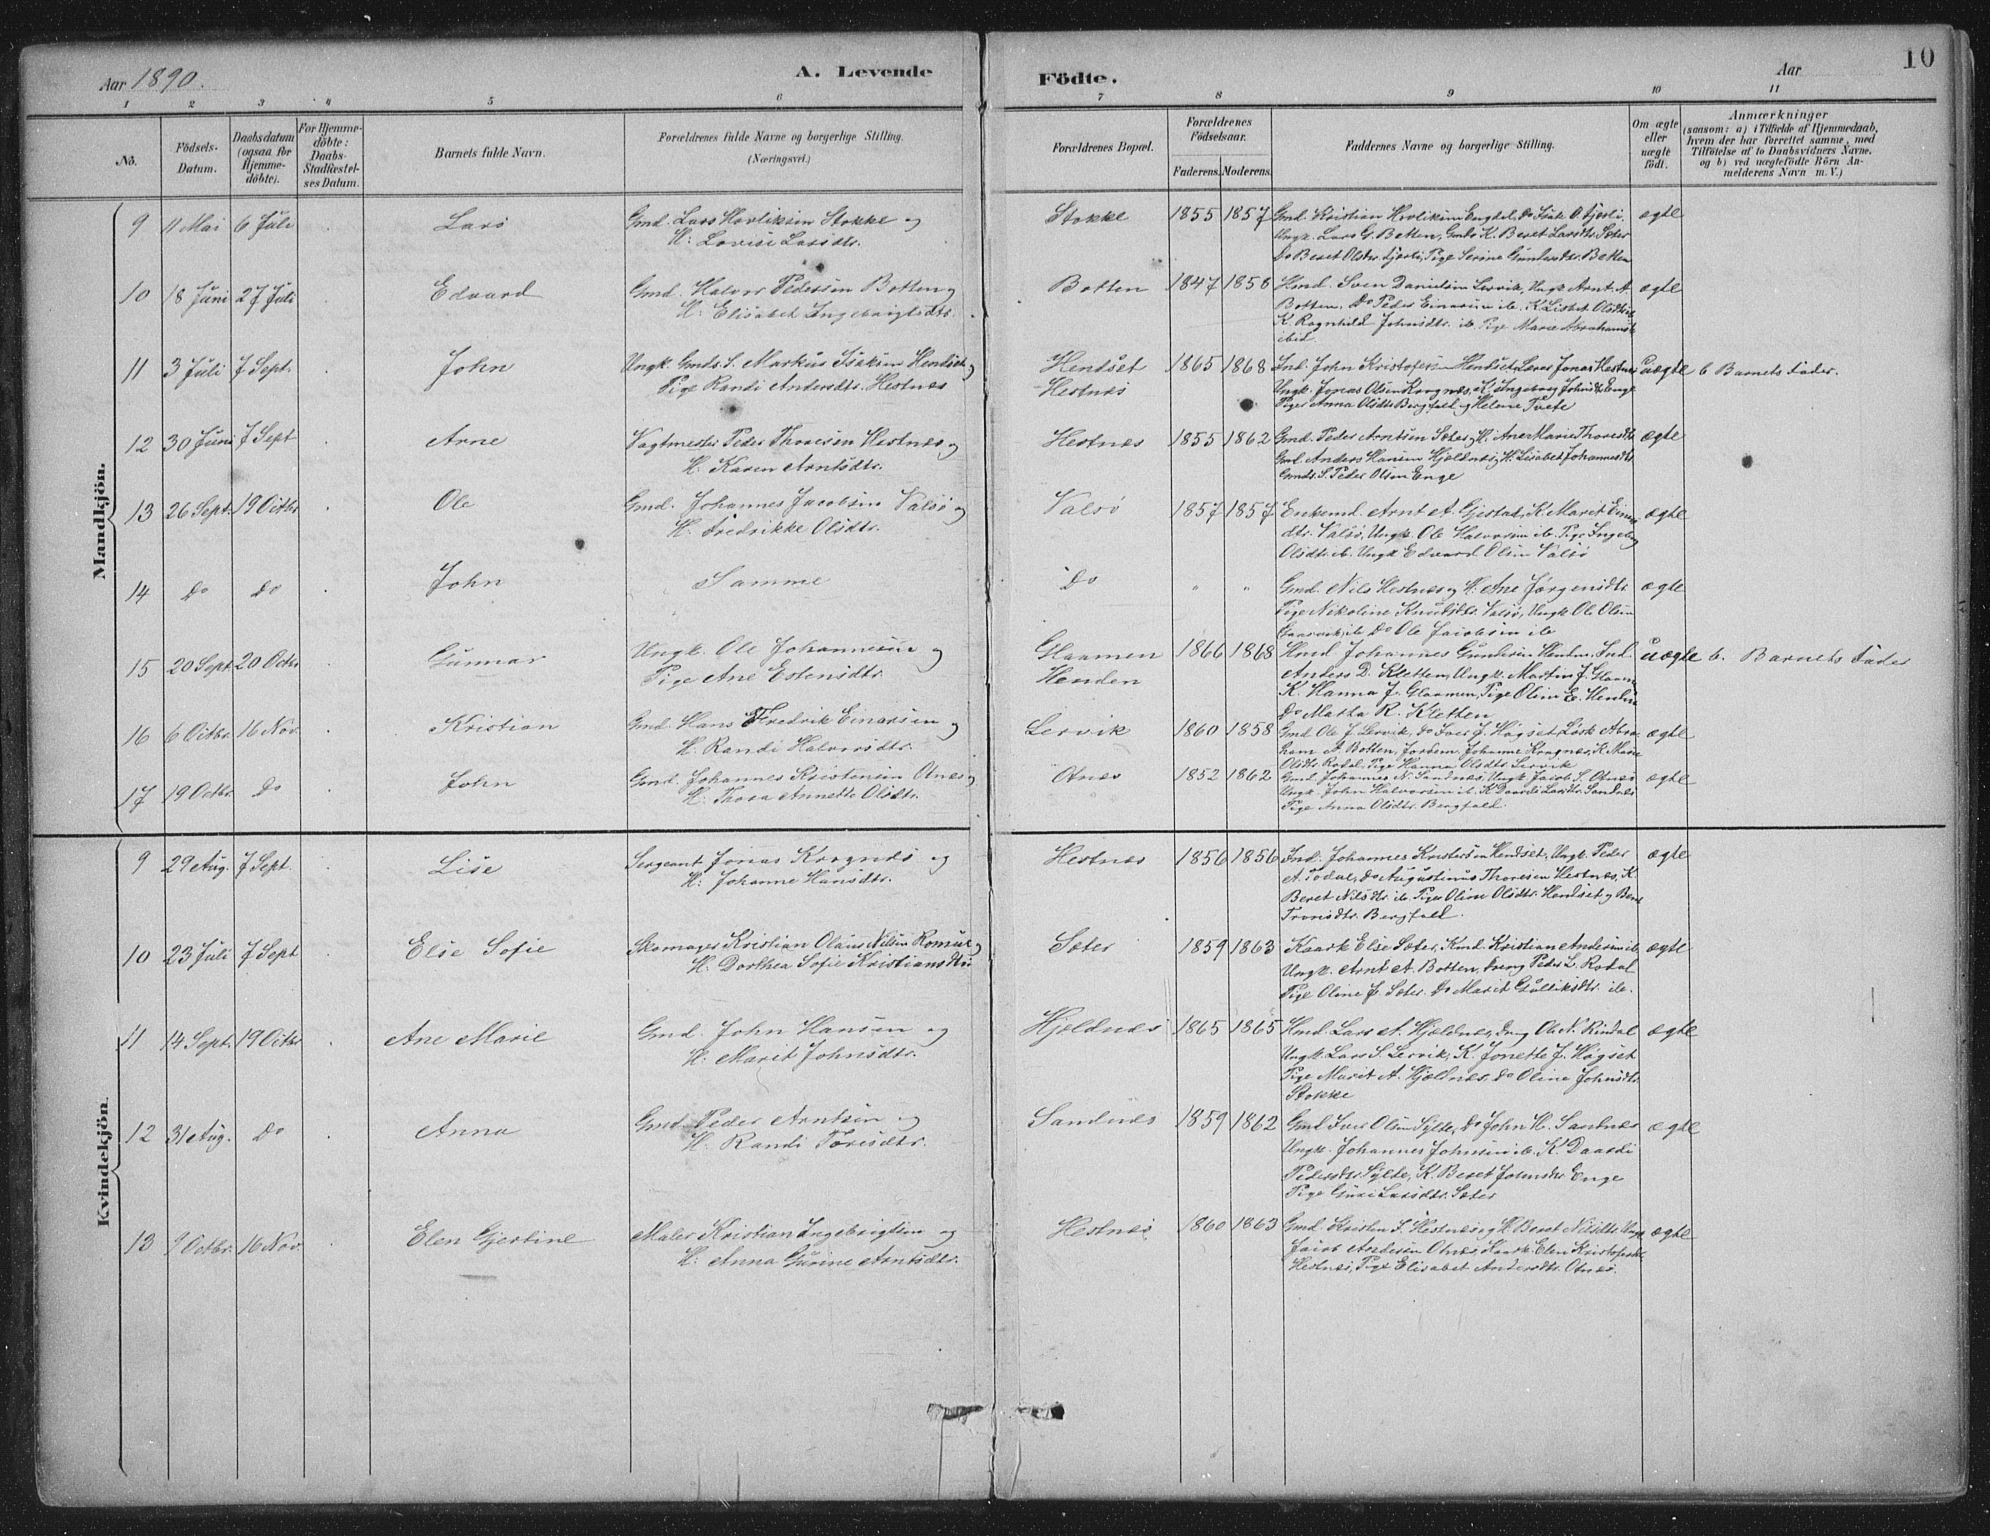 Aar 1890.
A. Levende
Födte.
Aar
10
1 2 3 4 5 6 7 8 9 10 11
No.
Födsels-Datum.
Daabsdatum (ogsaa for Hjemmedöbte).
For Hjemmedöbte: Daabs-Stadfæstelses Datum.
Barnets fulde Navn.
Forældrenes fulde Navne og borgerlige Stilling.
(Næringsvei.)
Forældrenes Bopæl.
Forældrenes Födselsaar.
Faderens. Moderens.
Faddernes Navne og borgerlige Stilling.
Om ægte eller uægte födt.
Anmærkninger
(saasom: a) i Tilfælde af Hjemmedaab, hvem der har forrettet samme, med Tilföielse af to Daabsvidners Navne, og b) ved uægtefödte Börn Anmelderens Navn m. V.)
Mandkjön.
9 11 Mai 6 Juli Lars Gmd. Lars Stokke og Stokke 1855 1857 Gmd. Kristian ægte
H. Lovise Larsdtr. Ungk. Lars G. Botten, K. Beret Larsdtr. Sæter
Do Beret Olsdtr. Pige Serine
10 18 Juni 27 Juli Edvard Gmd. Halvor Pedersen Botten og Botten 1847 1858 Sven Danielsen Lervik, Ungk. Arnt A. ægte
H. Elisabet Ingebrigtsdtr. Botten, Do Peder Einarsen ib.
K. Ragnhild Johnsdtr. ib. Pige Marie
ibid.
11 3 Juli 7 Sept. John Ungk. Gmds. S. Markus Isaksen Hendset og Hendset 1865 1868 Ind. John Kristofersen Hendset, Jonas Hestnes uægte b Barnets Fader.
Pige Randi Andersdtr. Hestnæs Hestnæs Ungk. Jonas Olsen Krognæs, K. Ingeborg Johnsdtr. Enge
Piger Anna Olsdtr. Bergfald og Helene Tvete
12 30 Juni 7 Sept Arne Vagtmester Peder Thoresen Hestnæs og Hestnæs 1855 1862 Gmd. Peder Arntsen Sæter og H. Ane Marie Thoresdtr. ægte
H. Karen Arntsdtr. Gmd. Anders Hansen Hjeldnæs og H. Lisabet Johannesdtr.
Gmds. S. Peder Olsen Enge
13 26 Sept. 19 Octbr Ole Gmd. Johannes Jacobsen Valsø og Valsø 1857 1857 Enkemd. Arnt A. Gjestad, K. Marit ægte
H. Fredrikke Olsdtr. dtr. Valsø, Ungk. Ole Halvorsen ib. Pige Ingeborg
Olsdtr. ib. Ungk. Edvard Olsen Valsø
14 Do Do John Samme Do " " Gmd. Nils Hestnæs og H. Ane Jørgensdtr. ægte
Pige Nikoline Knutsdtr. Valsø, Ungk. Ole Olsen
ib. Do Ole Jacobsen ib
15 20 Sept 20 Octbr Gunnar Ungk. Ole Johannesen og Glaamen 1866 1868 Johannes Gundersen Henden, Ind. uægte b. Barnets Fader
Pige Ane Estensdtr. Henden Anders D. Kletten, Ungk. Martin J. Glaamen
K. Hanna J. Glaamen, Pige Oline E. Henden
Do Matha R. Kletten
16 6 Octbr. 16 Nov. Kristian Gmd. Hans Fredrik Einarsen og Lervik 1860 1858 Gmd. Ole J. Lervik, Do Iver J. Høgset, Løsk. Abra- ægte
H. Randi Halvorsdtr. ham A. Botten, Johanne Krognæs, K. Marie
Olsdtr. Rodal, Pige Hanna Olsdtr. Lervik
17 19 Octbr. Do John Gmd. Johannes Kristensen Otnes og Otnæs 1852 1862 Gmd. Johannes N. Sandnæs, Ungk. Jacob S. Otnæs ægte
H. Thora Annette Olsdtr. Ungk. John Halvorsen ib. K. Daardi Larsdtr. Sandnæs
Pige Anna Olsdtr. Bergfald.
Kvindekjön.
9 29 Aug. 7 Sept. Lise Sergeant Jonas Krognæs og Hestnæs 1856 1856 Ind. Johannes Kristensen Hendset, Ungk. Peder ægte
H. Johanne Hansdtr. A. Todal, Do Augustinus Thoresen Hestnæs, K.
Beret Nilsdtr. ib. Piger Oline Olsdtr. Hendset og
Tronsdtr. Bergfald.
10 23 Juli 7 Sept Else Sofie Skomager Kristian Olaus Nilsen Romuld og Sæter 1859 1863 Kaark. Else Sæter, Kristian Andersen ib. ægte
H. Dorthea Sofie Kristiansdtr Ungk. Arnt A. Botten, Dreng Peder L. Rodal
Pige Oline J. Sæter. Do Marit Gulliksdtr. ib.
11 14 Sept. 19 Octbr Ane Marie Gmd. John Hansen og Hjeldnæs 1865 1865 Lars A. Hjeldnes, Dreng Ole N. Rindal ægte
H. Marit Johnsdtr. Ungk. Lars S. Lervik, K. Jonette J. Høgset
Pige Marit A. Hjeldnes, Do Oline Johnsdtr.
Stokke
12 31 Aug. Do Anna Gmd. Peder Arntsen og Sandnæs 1859 1862 Gmd. Iver Olsen Sylte, Do John H. Sandnæs ægte
H. Randi Toresdtr. Ungk. Johannes Johnsen ib. K. Daardi
Pedersdtr. Sylte, K. Beret Johnsdtr. Enge
Pige Guri Larsdtr. Sæter
13 9 Octbr. 16 Nov. Elen Gjertine Maler Kristian Ingebrigtsen og Hestnæs 1860 1863 Gmd. Kristen S. Hestnæs og H. Beret Nilsdtr. Ungk. ægte
H. Anna Gurine Arntsdtr. Jacob Andersen Otnæs, Kaark. Elen Kristofersdtr.
Hestnæs, Pige Elisabet Andersdtr. Otnæs.